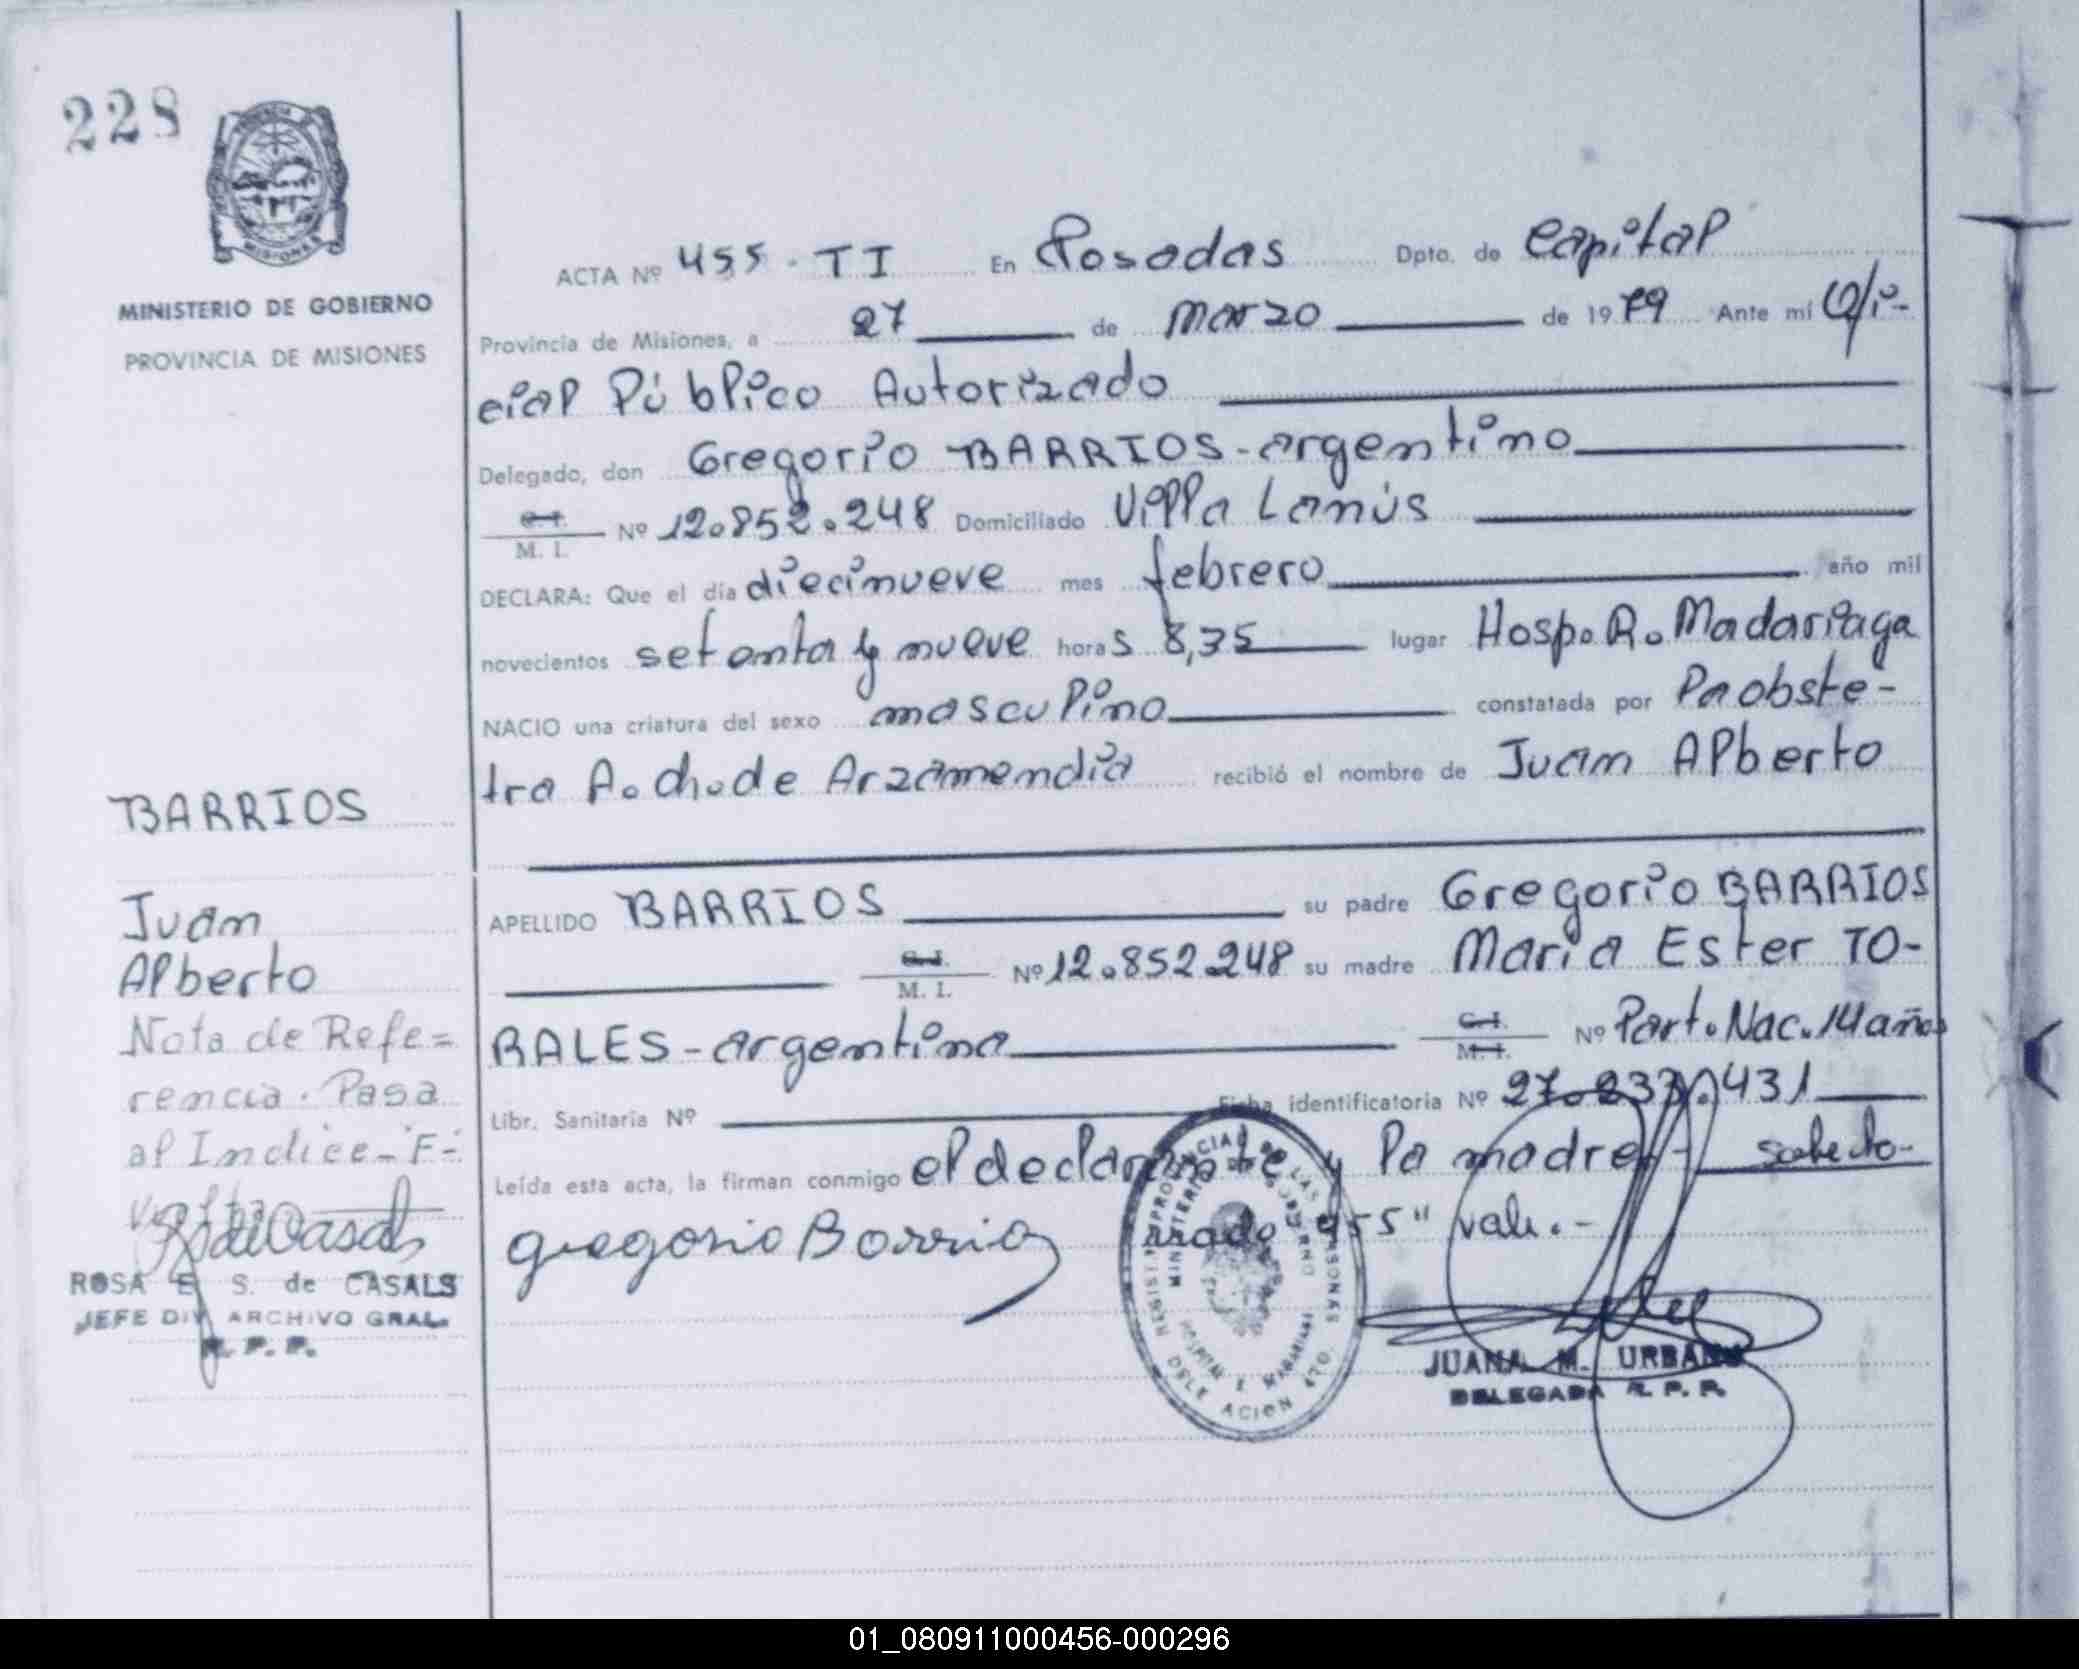 228
MINISTERIO DE GOBIERNO
PROVINCIA DE MISIONES
MISIONES
ACTA Nº 455 - TI En Posadas Dpto. de Capital
Provincia de Misiones, a 27 de Marzo de 1979 Ante mí Ofi-
cial Público Autorizado
Delegado, don Gregorio BARRIOS - argentino
C.I. M. I. Nº 12.852.248 Domiciliado Villa Lanús
DECLARA: Que el día diecinueve mes febrero año mil
novecientos setenta y nueve horas 8,35 lugar Hosp. R. Madariaga
NACIO una criatura del sexo masculino constatada por la obste-
tra A. ch. de Arzamendia recibió el nombre de Juan Alberto
BARRIOS
Juan
Alberto
Nota de Refe=
rencia. Pasa
al Indice - F -
ROSA E S. de CASALS
JEFE DIV ARCHIVO GRAL.
R. P. P.
APELLIDO BARRIOS su padre Gregorio BARRIOS
C.I. M. I. Nº 12.852.248 su madre Maria Ester TO-
RALES - argentina C.I. M.I. Nº Part. Nac. 14 años
Libr. Sanitaria Nº Ficha identificatoria Nº 27.233.431
Leída esta acta, la firman conmigo el declarante y la madre -
gregorio Barrios 455" vale. -
MINISTERIO DE GOBIERNO
HOSPITAL R. MADARIAGA
JUANA M. URBANO
DELEGADA R. P. P.
01_080911000456-000296